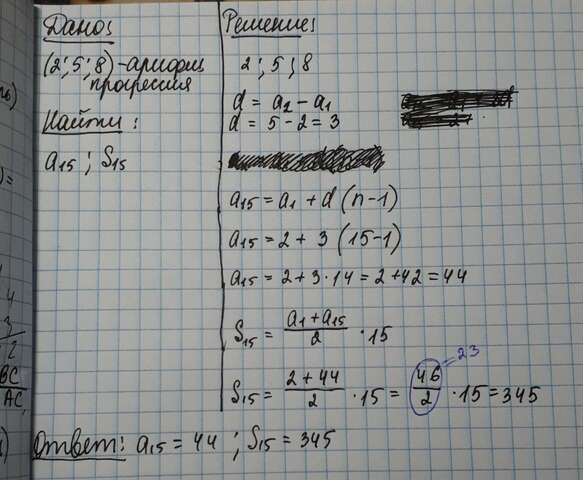 Дано:
(2; 5; 8) - арифм.
прогрессия
Найти:
a₁₅; S₁₅
Решение:
2; 5; 8
d = a₂ - a₁
d = 5 - 2 = 3
a₁₅ = a₁ + d (n-1)
a₁₅ = 2 + 3 (15-1)
a₁₅ = 2 + 3 · 14 = 2 + 42 = 44
S₁₅ = (a₁ + a₁₅)/2 · 15
S₁₅ = (2 + 44)/2 · 15 = 46/2 · 15 = 345
= 23
Ответ: a₁₅ = 44; S₁₅ = 345
4
3
2
BC
AC